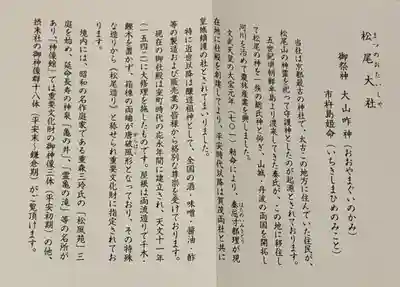 まつのおたいしゃ
松尾大社
御祭神 大山咋神(おおやまぐいのかみ)
市杵島姫命(いちきしまひめのみこと)
当社は京都最古の神社で、太古この地方に住んでいた住民が、
松尾山の神霊を祀って守護神としたのが起源とされております。
五世紀頃朝鮮半島より渡来してきた秦氏が、この地に移住し
て松尾の神を一族の総氏神と仰ぎ、山城・丹波の両国を開拓し
河川を治めて農林産業を興しました。
文武天皇の大宝元年(七〇一)勅命により、秦忌寸都理が現
はたのいみきとり
在地に社殿を創建してより、平安時代以降は賀茂両社と共に
皇城鎮護の社とされてまいりました。
特に近世以降は醸造祖神として、全国の酒・味噌・醤油・酢
等の製造および販売業の皆様から格別な尊崇を受けております。
現在の御社殿は室町時代の応永年間に建立され、天文十一年
(一五四二)に大修理を施したものです。屋根は両流造りで千木・
鰹木を置かず、箱棟の両端が唐破風形となっており、その特殊
な造りから「松尾造り」と称せられ重要文化財に指定されてお
ります。
境内には、昭和の名作庭家である重森三玲氏の「松風苑」三
庭を始め、延命長寿の神泉「亀の井」、「霊亀の滝」等の名所が
あり、「神像館」では重要文化財の御神像三体(平安初期)の他、
摂末社の御神像群十八体(平安末～鎌倉期)がご覧頂けます。